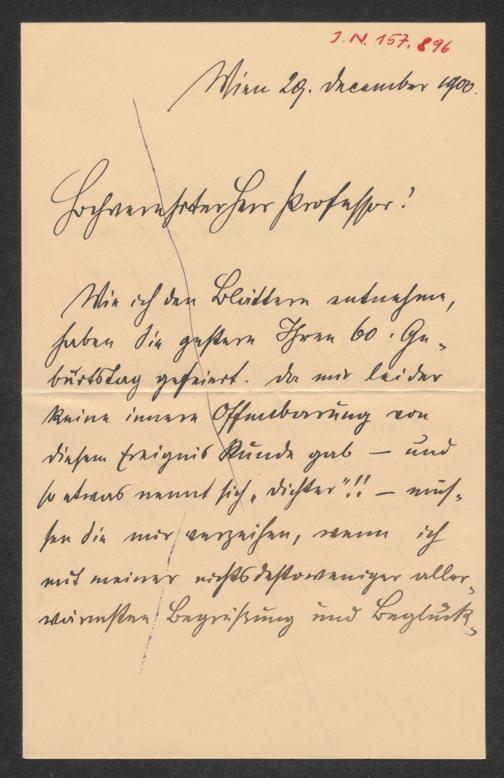 J. N. 157.896
Wien 29. December 1900.
Hochverehrter Herr Professor!
Wie ich den Blättern entnehme,
haben Sie gestern Ihren 60. Ge-
burtstag gefeiert. Da mir leider
keine innere Offenbarung von
diesem Ereignis Kunde gab – und
so etwas nennt sich „Dichter"!! – müs-
sen Sie mir verzeihen, wenn ich
mit meiner nichtsdestoweniger aller-
wärmsten Begrüßung und Beglück-